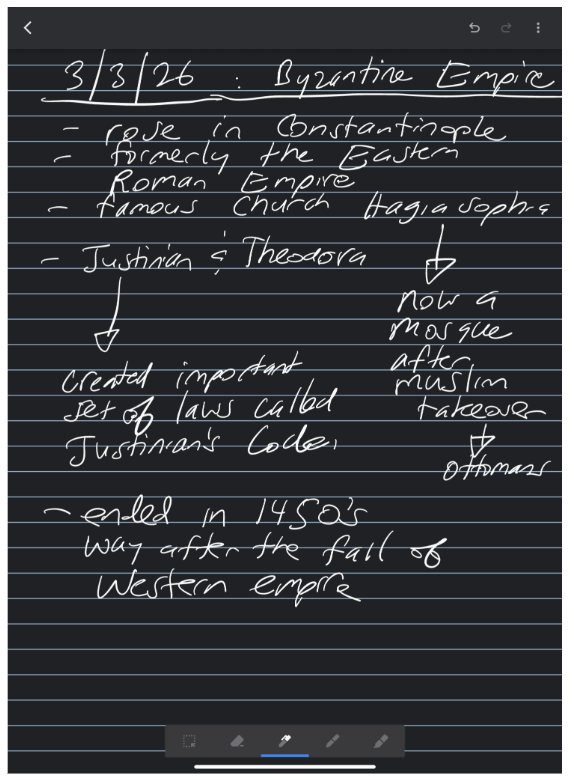 3/3/26 : Byzantine Empire
- rose in Constantinople
- formerly the Eastern
Roman Empire
- famous Church Hagia Sophia
- Justinian & Theodora
now a
mosque
after
muslim
takeover
ottomans
created important
set of laws called
Justinian's Code
- ended in 1450's
way after the fall of
Western empire